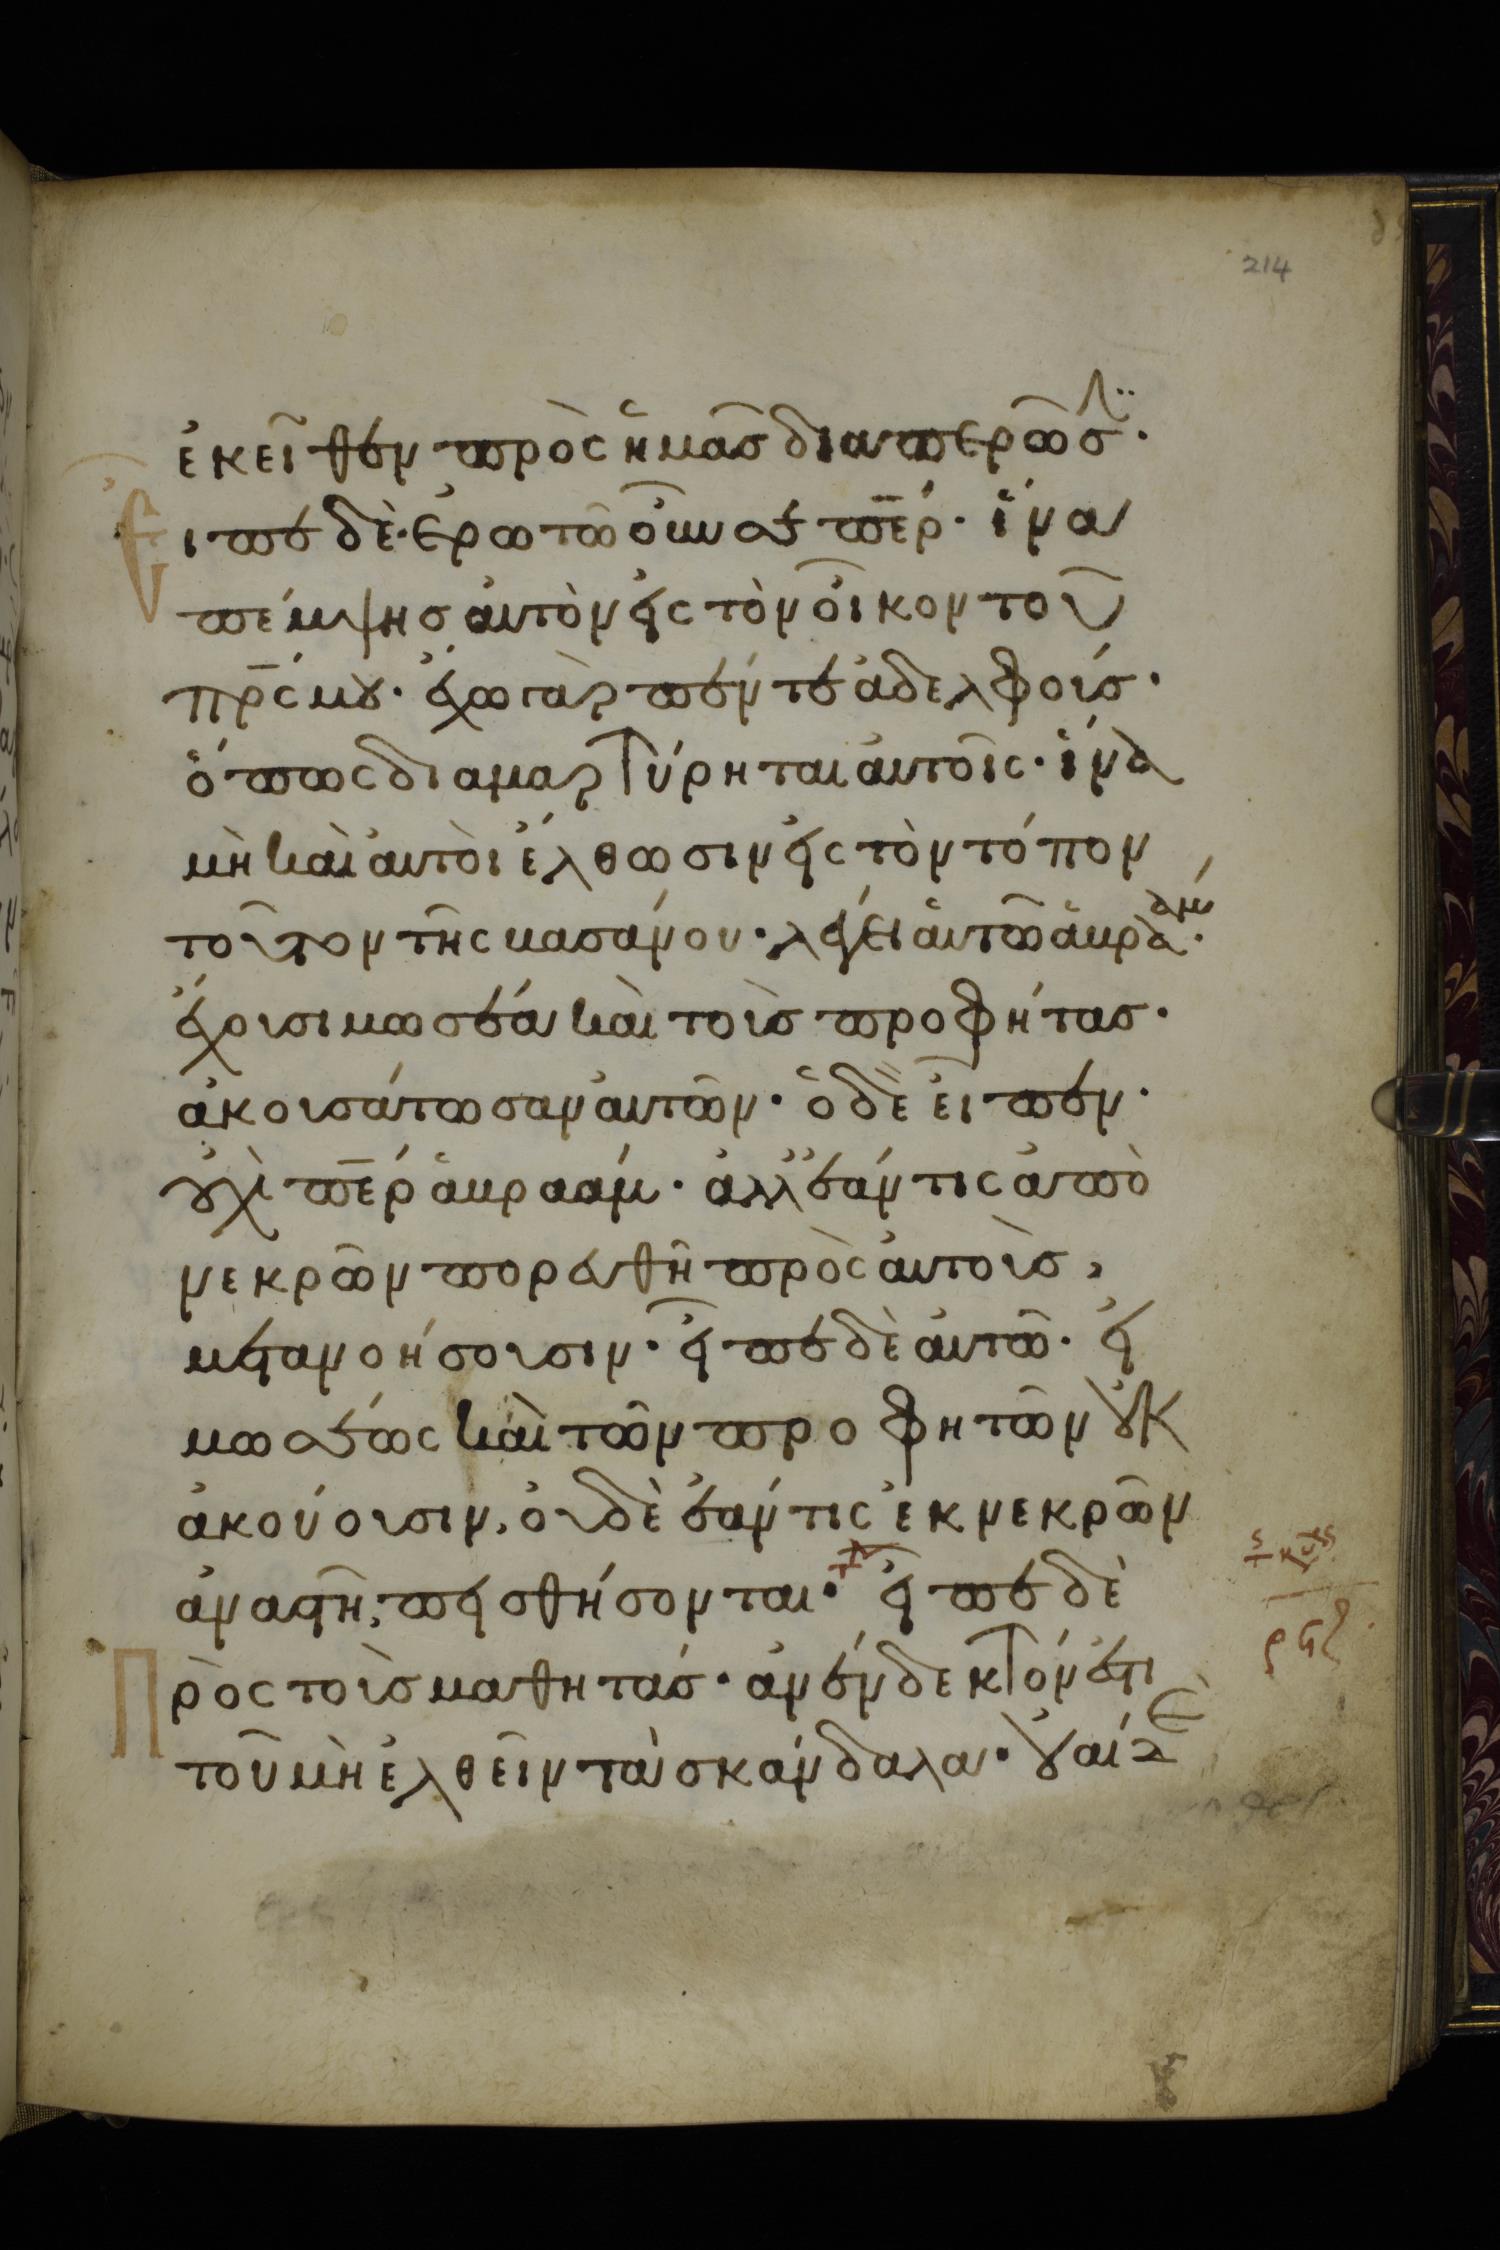 214
ἐκεῖθεν πρὸς ἡμᾶς διαπερῶσ·
Εἶπε δὲ· ἐρωτῶ οὖν σε πε̅ρ· ἵνα
πέμψησ αὐτὸν εἰς τὸν οἶκον τοῦ
πρ̅ς μου· ἔχω γὰρ πέντε ἀδελφούσ·
ὅπως διαμαρτύρηται αὐτοῖς· ἵνα
μὴ καὶ αὐτοὶ ἔλθωσιν εἰς τὸν τόπον
τοῦτον τῆς βασάνου· λέγει αὐτῶ ἁβραάμ·
ἔχουσι μωσέα καὶ τοὺσ προφήτασ·
ἀκουσάτωσαν αὐτῶν· ὁ δὲ εἶπεν·
οὐχὶ πε̅ρ ἁβραάμ· ἀλλ' ἐάν τις ἀπὸ
νεκρῶν πορευθῆ πρὸς αὐτοὺσ,
μετανοήσουσιν· εἶπε δὲ αὐτῶ· εἰ
μωσέως καὶ τῶν προφητῶν οὐκ
ἀκούουσιν, οὐδὲ ἐάν τις ἐκ νεκρῶν
ἀναστῆ, πεισθήσονται· εἶπε δὲ
Πρὸς τοὺσ μαθητάσ· ἀνένδεκτόν ἐστι
τοῦ μὴ ἐλθεῖν τὰ σκάνδαλα· οὐαὶ δὲ